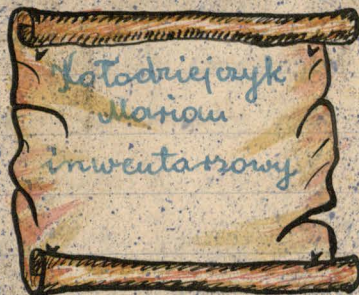 Kołodziejczyk
Marian
inwentarzowy